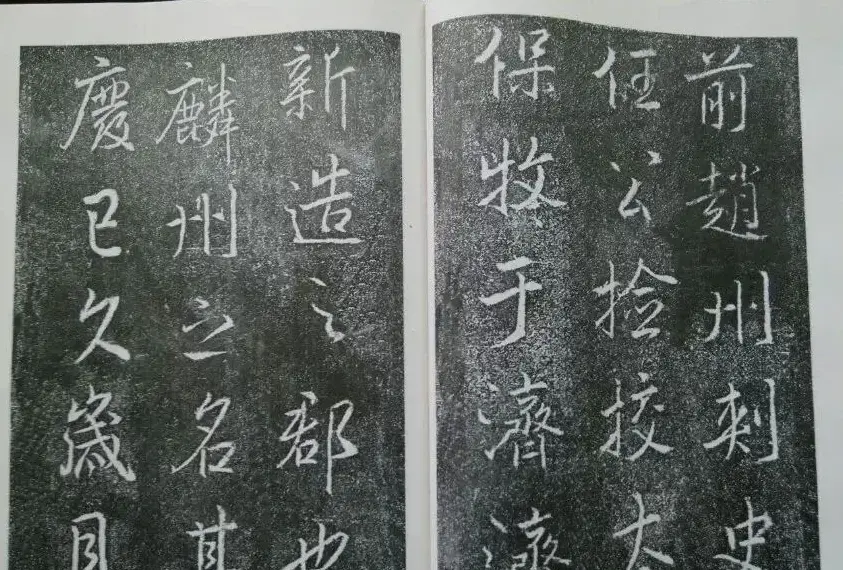 前趙州刺史
任公檢挍大
保牧于濟濟
新造之郡也
麟州之名其
慶已久歲月